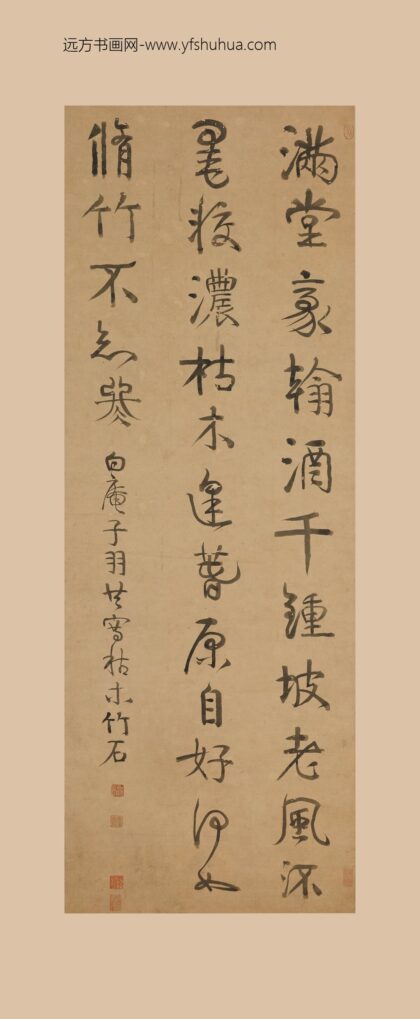 远方书画网-www.yfshuhua.com
滿堂豪翰酒千鍾坡老風流
墨濃枯木逢春原自好何如
脩竹不
庵子羽共寫枯木竹石